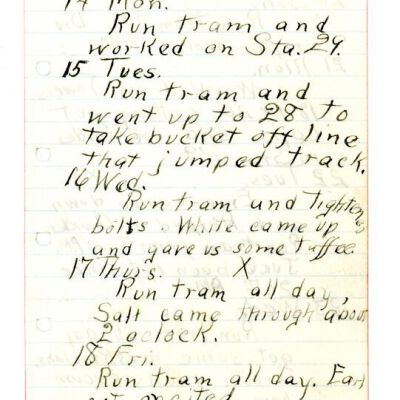 14 Mon.
Run tram and
worked on Sta. 29.
15 Tues.
Run tram and
went up to 28 to
take bucket off line
that jumped track.
16 Wed.
Run tram und tighten
bolts. White came up
and gave us some taffee.
17 Thurs. X
Run tram all day,
Salt came through about
2 oclock.
18 Fri.
Run tram all day. Earl
got excited